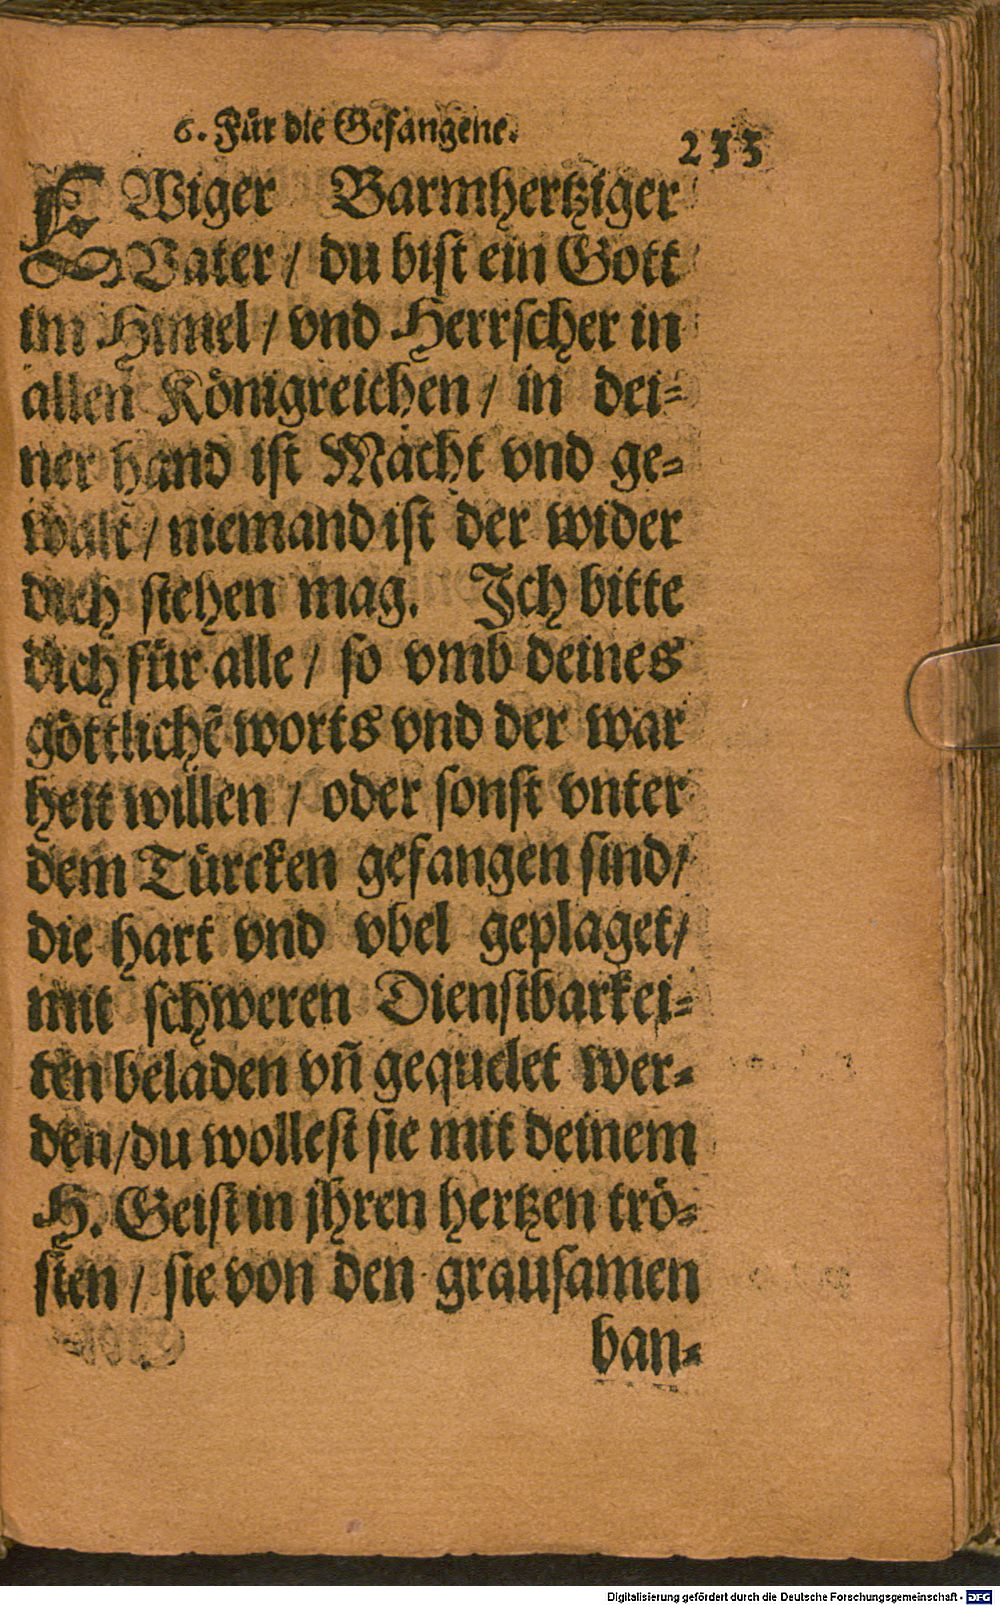 6. Für die Gefangene.
233
EWiger Barmhertziger
Vater / du bist ein Gott
im Himel / vnd Herrscher in
allen Königreichen / in dei-
ner hand ist Macht vnd ge-
walt / niemand ist der wider
dich stehen mag. Ich bitte
dich für alle / so vmb deines
göttlichẽ worts vnd der war
heit willen / oder sonst vnter
dem Türcken gefangen sind /
die hart vnd vbel geplaget /
mit schweren Dienstbarkei-
ten beladen vñ gequelet wer-
den / du wollest sie mit deinem
H. Geist in jhren hertzen trö-
sten / sie von den grausamen
ban-
Digitalisierung gefördert durch die Deutsche Forschungsgemeinschaft - DFG